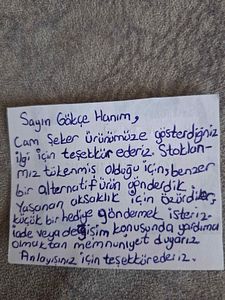 Sayın Gökçe Hanım,
Cam Şeker ürünümüze gösterdiğiniz
ilgi için teşekkür ederiz. Stokları-
mız tükenmiş olduğu için, benzer
bir alternatif ürün gönderdik.
Yaşanan aksaklık için özür diler,
küçük bir hediye göndermek isteriz.
İade veya değişim konusunda yardımcı
olmaktan memnuniyet duyarız.
Anlayışınız için teşekkür ederiz.